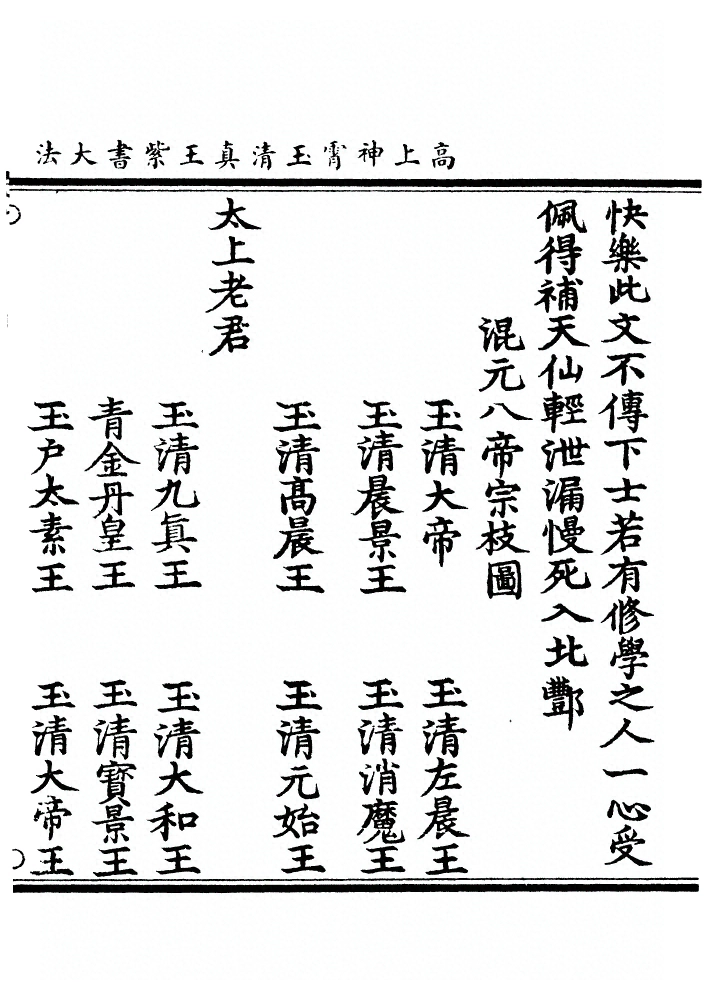 高上神霄玉清真王紫書大法
快樂此文不傳下士若有修學之人一心受
佩得補天仙輕泄漏慢死入北酆
混元八帝宗枝圖
玉清大帝　玉清左晨王
玉清晨景王　玉清消魔王
玉清高晨王　玉清元始王
太上老君
玉清九真王　玉清大和王
青金丹皇王　玉清寶景王
玉户太素王　玉清大帝王